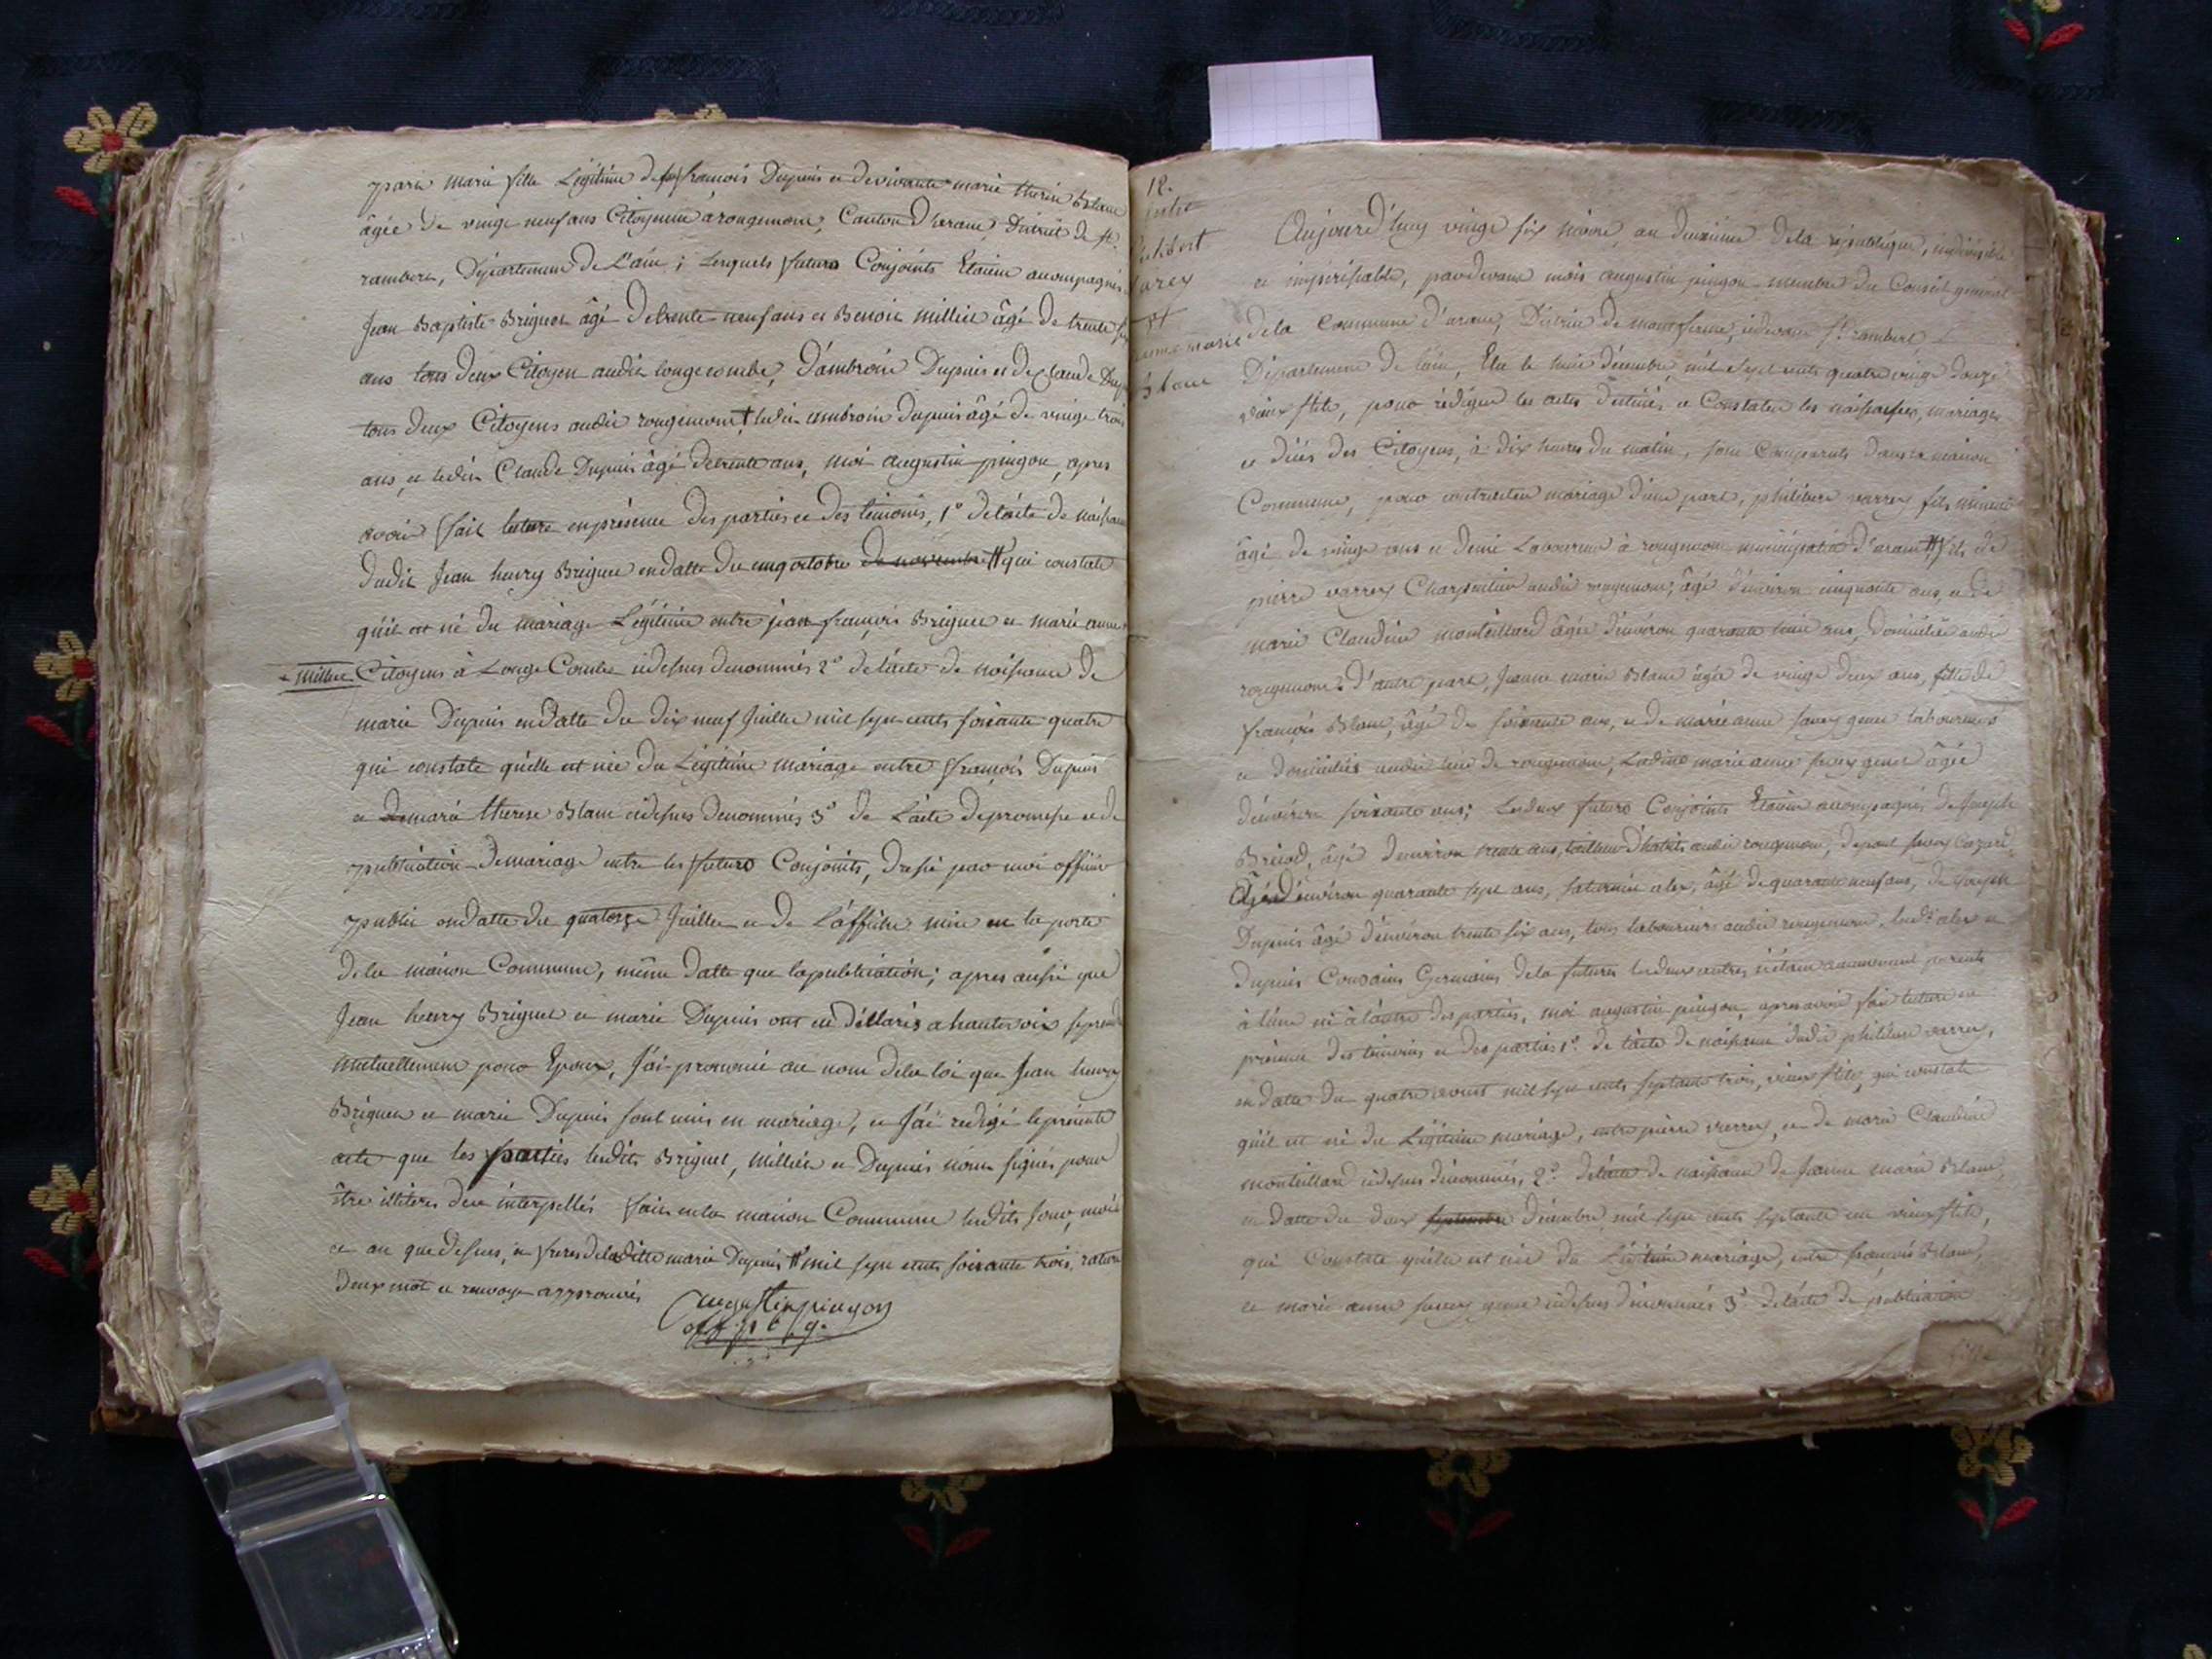 part marie fille Légitime de feu françois Dupuis et de vivante marie therese Blanc
âgée de vingt neuf ans Citoyenne a rougemont, Canton d'aranc, District de st
rambert, Département de L'ain ; Lesquels futurs Conjoints Etoient accompagnés
Jean Baptiste Briguet âgé de trente neuf ans et Benoit milliet âgé de trente six
ans tous deux Citoyen audit longecombe, d'ambroise Dupuis et de Claude
tous deux Citoyens audit rougemont, ledit ambroise dupuis âgé de vingt trois
ans, et ledit Claude Dupuis âgé de trente ans, moi augustin pingon, apres
avoir fait lecture en présence des parties et des témoins, 1° de l'acte de naissance
dudit Jean henry Briguet en datte du cinq octobre de novembre # qui constate
qu'il est né du mariage Légitime entre jean françois Briguet et marie anne
+ milliet Citoyens à Longe Combe cidessus denommés 2° de l'acte de naissance de
marie Dupuis en datte du dix neuf Juillet mil sept cents soixante quatre
qui constate qu'elle est née du Légitime mariage entre françois Dupuis
et de marie therese Blanc cidessus denommés 3° de L'acte de promesse et de
publication de mariage entre les futurs Conjoints, dressé par moi officier
public en datte du quatorze Juillet et de L'affiche mise en la porte
de la maison Commune, même datte que la publication ; apres aussi que
Jean henry Briguet et marie Dupuis ont eu déclaré a haute voix se prendre
mutuellement pour Epoux, J'ai prononcé au nom de la loi que Jean henry
Briguet et marie Dupuis sont unis en mariage, et J'ai redigé le présent
acte que les parties lesdits Briguet, milliet et Dupuis n'ont signés pour
être illiteres de ce interpellés fait en la maison Commune lesdits jour, mois
et an que dessus, et freres de laditte marie Dupuis # mil sept cents soixante trois, rature
deux mot et renvoye approuvés
augustin pingon
off. p.
12.
philibert
varey
et
jeanne marie
blanc
Aujourd'huy vingt six nivose, an deuxieme de la république, indivisible
et impérissable, pardevant moi augustin pingon membre du Conseil general
de la Commune d'aranc, District de montferme, cidevant st rambert
Département de l'ain, Elu le huit décembre, mil sept cents quatre vingt douze
vieux stile, pour rédiger les actes destinés a Constater les naissances, mariages
et décés des Citoyens, à dix heures du matin, sont Comparuts dans la maison
Commune, pour contracter mariage d'une part, philibert varrey fils mineur
âgé de vingt ans et demi Laboureur à rougemont municipalité d'aranc # fils de
pierre varrey Charpentier audit rougemont, âgé d'environ cinquante ans, et de
marie Claudine monteillard âgée d'environ quarante huit ans, domiciliés audit
rougemont. d'autre part, Jeanne marie Blanc âgée de vingt deux ans, fille de
françois Blanc, âgé de soixante ans, et de marie anne savey genet laboureurs
et domiciliés audit lieu de rougemont, Ladite marie anne savey genet âgée
d'environ soixante ans ; Lesdeux futurs Conjoints Etoient accompagnés de Joseph
âgé d'environ trente ans, tailleur d'habits audit rougemont, de paul savey
âgé d'environ quarante sept ans, saturnin alex, âgé de quarante neuf ans, de Joseph
Dupuis âgé d'environ trente six ans, tous laboureurs audit rougemont, lesdts alex et
Dupuis Cousins Germains de la future lesdeux autres n'étant aucunement parents
à l'une ni à l'autre des parties, moi augustin pingon, apres avoir fait lecture en
présence des témoins et des parties 1° de l'acte de naissance dudit philibert varrey,
en datte du quatre aout mil sept cents septante trois, vieux stile, qui constate
qu'il est né du Légitime mariage, entre pierre varrey, et de marie Claudine
monteillard cidessus dénommés, 2° de l'acte de naissance de Jeanne marie Blanc,
en datte du deux septembre décembre, mil sept cents septante un vieux stile,
qui Constate qu'elle est née du Légitime mariage, entre françois Blanc,
et marie anne savey genet cidessus dénommés 3° de l'acte de publication